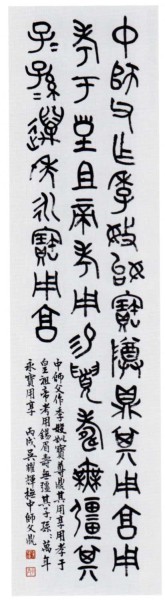 中師父乍季㚸始寶尊鼎其用享用
考于皇且帝考用易眉壽無疆其
子=孫=萬年永寶用享
中師父作季㚸姒寶尊鼎其用享用孝于
皇祖帝考用錫眉壽無疆其子=孫=萬年
永寶用享 丙戌吳耀輝撫中師父鼎